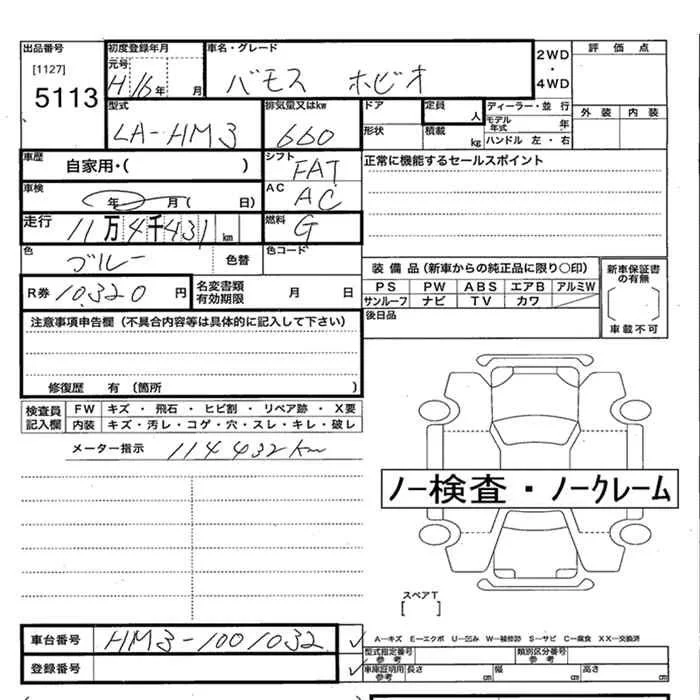 出品番号 初度登録年月 車名・グレード 2WD・4WD 評価点
[1127] 元号
5113 H16年 月 バモス ホビオ
型式 排気量又はkw ドア 定員 人 ディーラー・並行 外装 内装
LA-HM3 660 形状 積載 kg モデル年式 年
ハンドル 左・右
車歴 自家用・( ) シフト FAT 正常に機能するセールスポイント
車検 年 月( 日) AC AC
走行 11万4千431km 燃料 G
色 ブルー 色替 色コード
装備品(新車からの純正品に限り○印) 新車保証書の有無
R券 10,320円 名変書類有効期限 月 日
PS PW ABS エアB アルミW
サンルーフ ナビ TV カワ
車載不可
注意事項申告欄(不具合内容等は具体的に記入して下さい) 後日品
修復歴 有(箇所 )
検査員記入欄 FW キズ・飛石・ヒビ割・リペア跡・X要
内装 キズ・汚レ・コゲ・穴・スレ・キレ・破レ
メーター指示 114432km
ノー検査・ノークレーム
スペアT
[ ]
車台番号 HM3-1001032 ✓ A―キズ E―エクボ U―凹み W―補修跡 S―サビ C―腐食 XX―交換済
型式指定番号参考 類別区分番号参考
登録番号 ✓ 車庫証明用参考 長さ cm 幅 cm 高さ cm